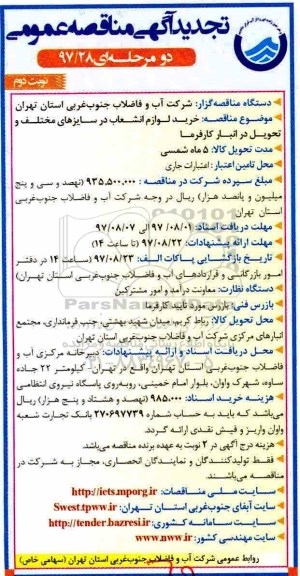 تجدیدآگهی مناقصه عمومی
دو مرحله‌ای ۹۷/۲۸
نوبت دوم
دستگاه مناقصه‌گزار: شرکت آب و فاضلاب جنوب‌غربی استان تهران
موضوع مناقصه: خرید لوازم انشعاب در سایزهای مختلف و
تحویل در انبار کارفرما
مدت تحویل کالا: ۵ ماه شمسی
محل تامین اعتبار: اعتبارات جاری
مبلغ سپرده شرکت در مناقصه : ۹۳۵,۵۰۰,۰۰۰ (نهصد و سی و پنج
میلیون و پانصد هزار) ریال در وجه شرکت آب و فاضلاب جنوب‌غربی
استان تهران
مهلت دریافت اسناد: ۹۷/۰۸/۰۱ الی ۹۷/۰۸/۰۷
مهلت ارائه پیشنهادات: ۹۷/۰۸/۲۲ (تا ساعت ۱۴)
تاریخ بازگشایی پاکات الف: ۹۷/۰۸/۲۳ (ساعت ۱۴ در دفتر
امور بازرگانی و قراردادهای آب و فاضلاب جنوب‌غربی استان تهران)
دستگاه نظارت: معاونت درآمد و امور مشترکین
بازرس فنی: بازرس مورد تأیید کارفرما
محل تحویل کالا: رباط کریم، میدان شهید بهشتی، جنب فرمانداری، مجتمع
انبارهای مرکزی شرکت آب و فاضلاب جنوب‌غربی استان تهران
محل دریافت اسناد و ارائه پیشنهادات: دبیرخانه مرکزی آب و
فاضلاب جنوب‌غربی استان تهران واقع در تهران- کیلومتر ۲۲ جاده
ساوه، شهرک واوان، بلوار امام خمینی، روبه‌روی پاسگاه نیروی انتظامی
هزینه خرید اسناد: ۹۸۵,۰۰۰ (نهصد و هشتاد و پنج هزار) ریال
می‌باشد که باید به حساب شماره ۲۷۰۶۹۷۷۳۹ بانک تجارت شعبه
واوان واریز و فیش نقدی ارائه گردد.
هزینه درج آگهی در ۲ نوبت به عهده برنده مناقصه می‌باشد.
فقط تولیدکنندگان و نمایندگان انحصاری، مجاز به شرکت در
مناقصه می‌باشند.
سایت ملی مناقصات: http://iets.mporg.ir
سایت آبفای جنوب‌غربی استان تهران: Swest.tpww.ir
سایت سامانه کشوری: http://tender.bazresi.ir
سایت مهندسی کشور: www.nww.ir
روابط عمومی شرکت آب و فاضلاب جنوب‌غربی استان تهران (سهامی خاص)